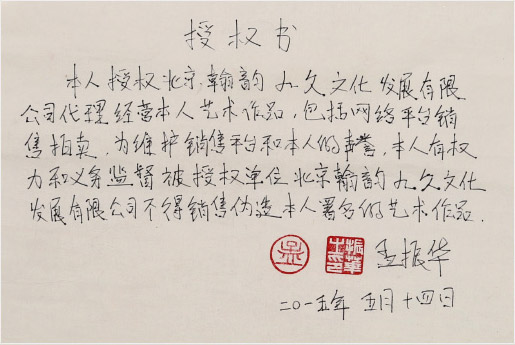 授权书
本人授权北京翰韵九久文化发展有限
公司代理经营本人艺术作品，包括网络平台销
售拍卖。为维护销售平台和本人的声誉，本人有权
力和义务监督被授权单位北京翰韵九久文化
发展有限公司不得销售伪造本人署名的艺术作品。
孟振华
二〇一五年 五月十四日